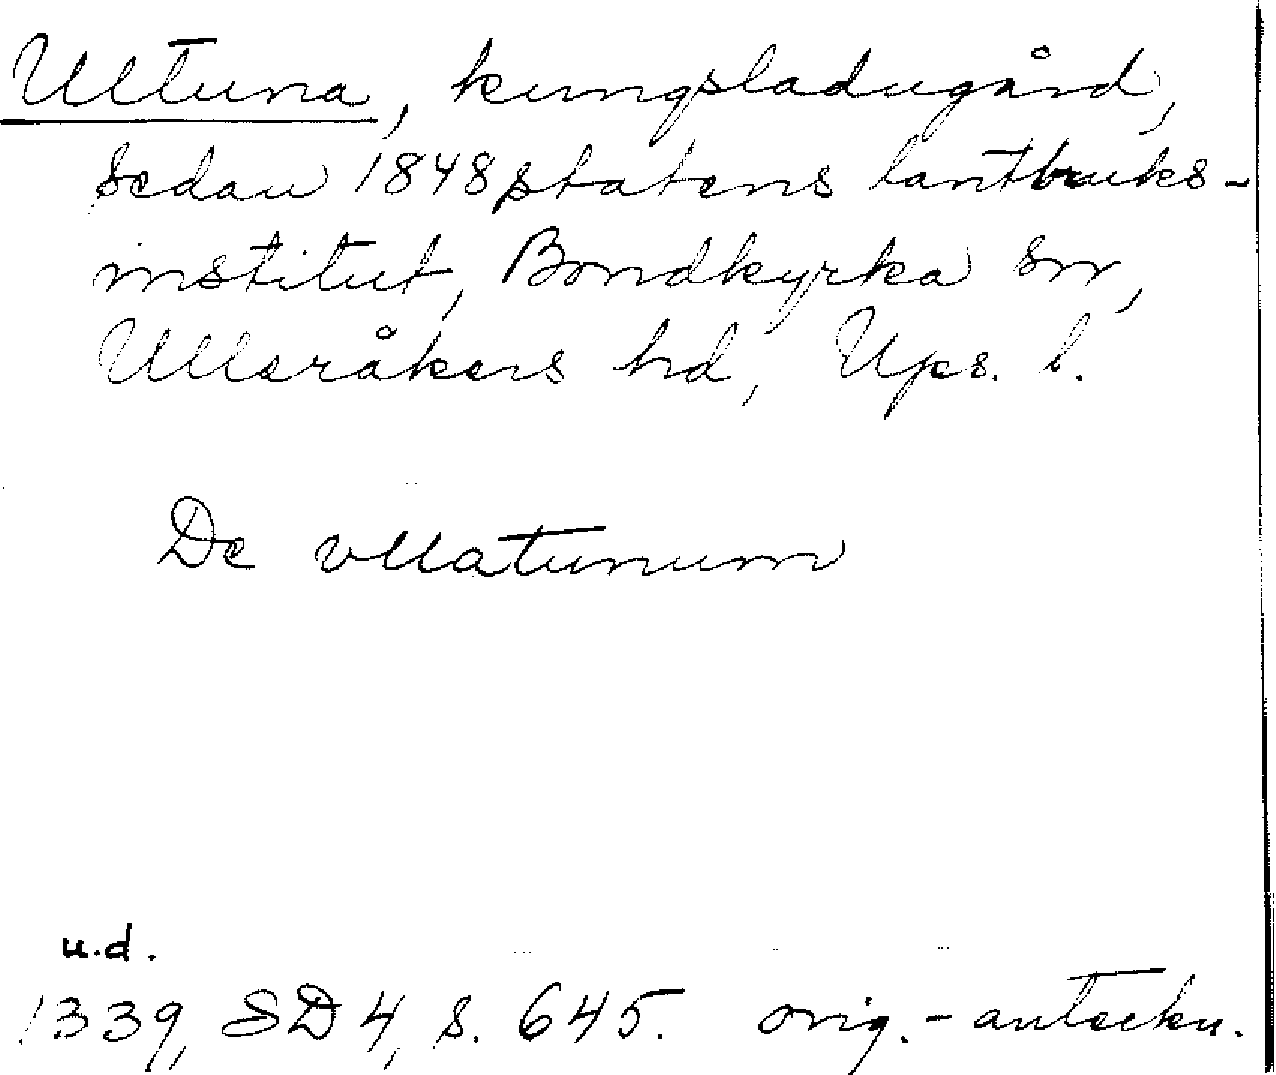 Ultuna, kungsladugård,
sedan 1848 statens lantbruks-
institut, Bondkyrka sn,
Ulleråkers hd, Ups. l.
De vllatunum
u.d.
1339, SD 4, s. 645. orig.-anteckn.